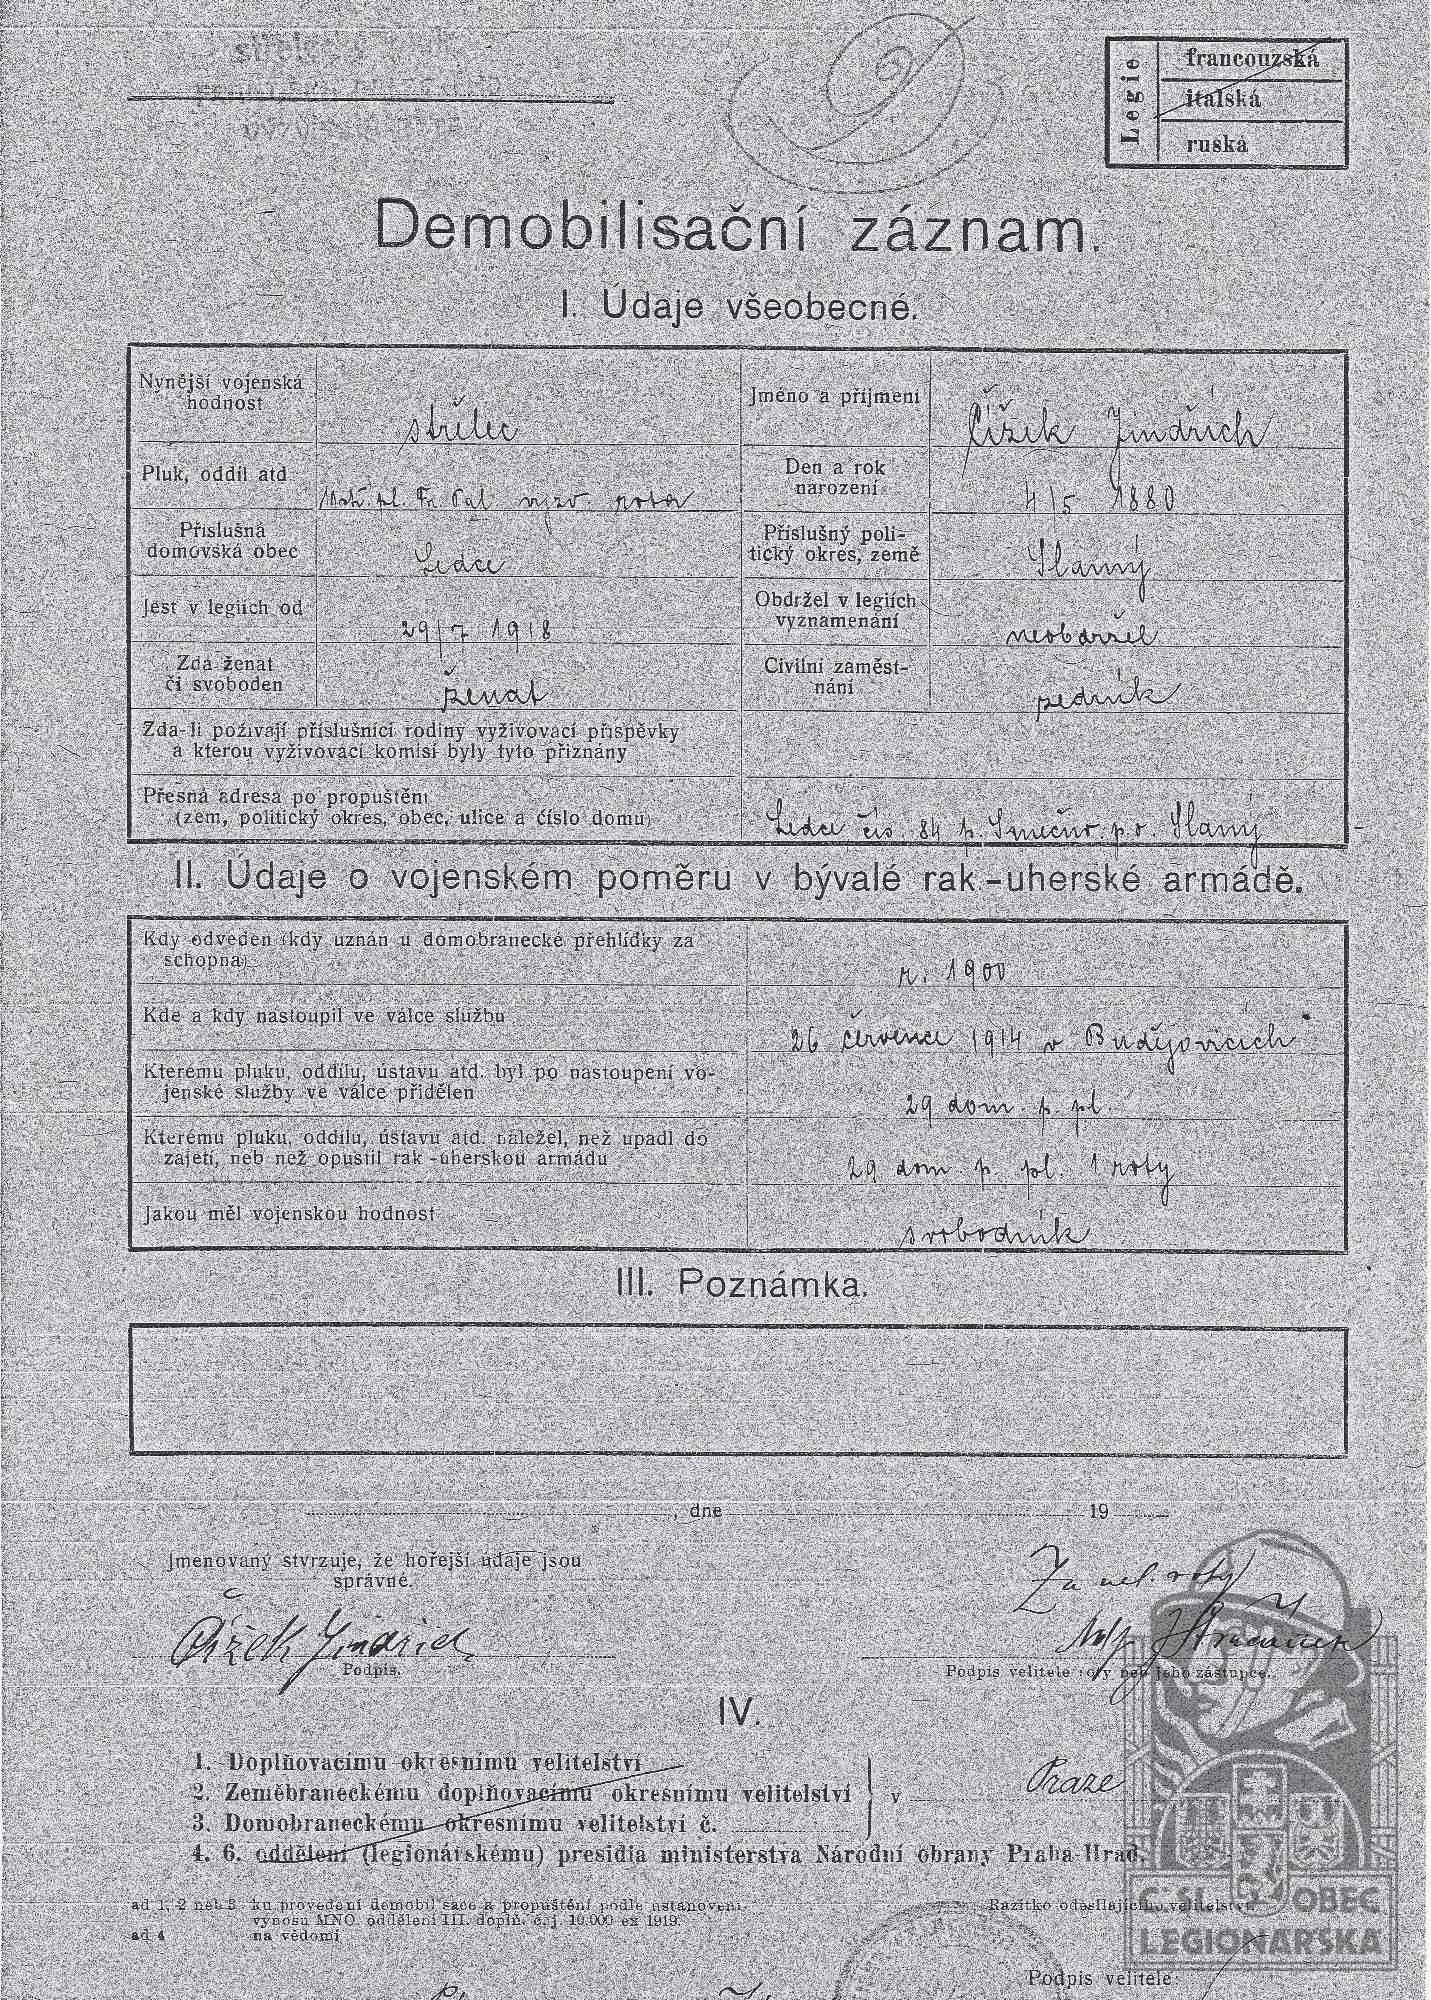 Legie
francouzská
italská
ruská
Demobilisační záznam.
I. Údaje všeobecné.
Nynější vojenská hodnost
střelec
Jméno a příjmení
Čížek Jindřich
Pluk, oddíl atd
pl. rota
Den a rok narození
4/5 1880
Příslušná domovská obec
Ledce
Příslušný politický okres, země
Slaný
Jest v legiích od
29/7 1918
Obdržel v legiích vyznamenání
neobdržel
Zda ženat či svoboden
ženat
Civilní zaměstnání
zedník
Zda-li požívají příslušníci rodiny vyživovací příspěvky
a kterou vyživovací komisí byly tyto přiznány
Přesná adresa po propuštění
(zem, politický okres, obec, ulice a číslo domu)
Ledce čís 84 p. Smečno. p. o. Slaný
II. Údaje o vojenském poměru v bývalé rak.-uherské armádě.
Kdy odveden (kdy uznán u domobranecké přehlídky za
schopna)
r. 1900
Kde a kdy nastoupil ve válce službu
26 července 1914 v Budějovicích
Kterému pluku, oddílu, ústavu atd. byl po nastoupení vo-
jenské služby ve válce přidělen
29 dom. p. pl.
Kterému pluku, oddílu, ústavu atd. náležel, než upadl do
zajetí, neb než opustil rak-uherskou armádu
29 dom p. pl. 1 roty
Jakou měl vojenskou hodnost
svobodník
III. Poznámka.
, dne 19
Jmenovaný stvrzuje, že hořejší údaje jsou
správné.
Čížek Jindřich
Podpis.
Za vel. roty
Podpis velitele roty neb jeho zástupce.
IV.
1. Doplňovacímu okresnímu velitelství
2. Zeměbraneckému doplňovacímu okresnímu velitelství
3. Domobraneckému okresnímu velitelství č.
v Praze
4. 6. oddělení (legionářskému) presidia ministerstva Národní obrany Praha-Hrad.
ad 1, 2 neb 3 ku provedení demobilisace a propuštění podle ustanovení
výnosu MNO. oddělení III. doplň. č. j. 10.000 ex 1919.
ad 4 na vědomí
Razítko odesílajícího velitelství.
Podpis velitele:
ČSL. OBEC
LEGIONÁŘSKÁ